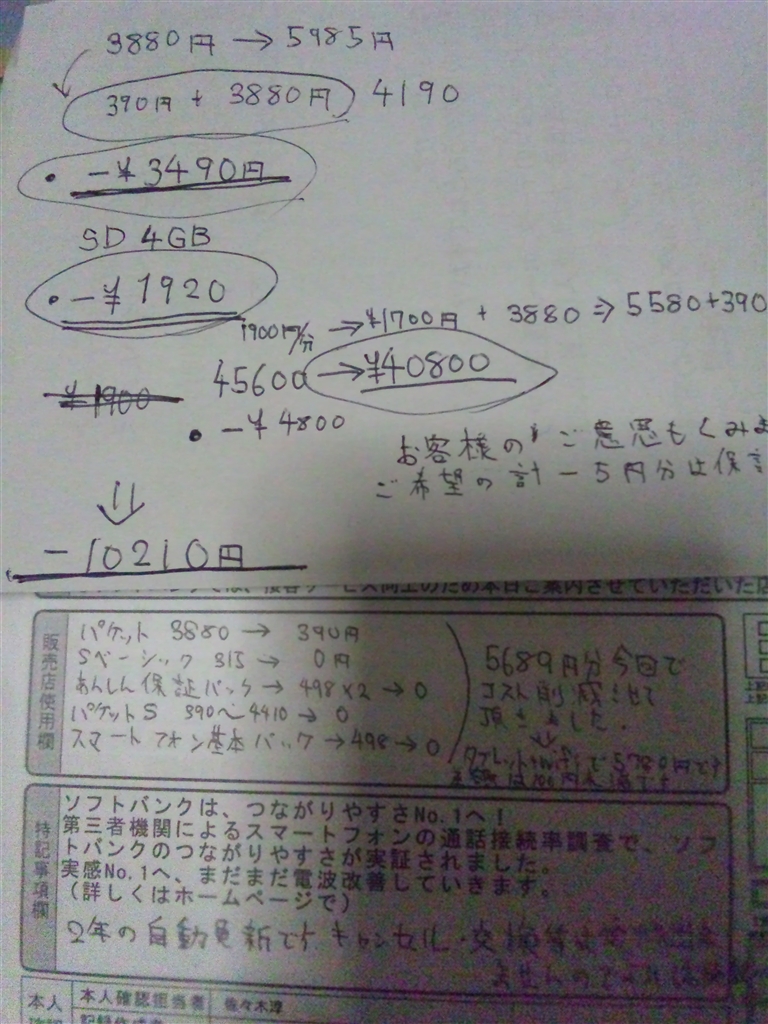 3880円 → 5985円
390円 + 3880円 4190
・ -¥3490円
SD 4GB
・ -¥1920
1900円/分 → ¥1700円 + 3880 ⇒ 5580+390
¥1900 45600 → ¥40800
・ -¥4800
お客様の ご意思もくみ
ご希望の計-5円分は保
⇓
-10210円
サービス向上のため本日ご案内させていただいた店
販売店使用欄
パケット 3880 → 390円
Sベーシック 315 → 0円
あんしん保証パック → 498×2 → 0
パケットS 390〜4410 → 0
スマートフォン基本パック → 498 → 0
5689円分今回で
コスト削減させて
頂きました。
タブレット+Wifiで5780円です
特記事項欄
ソフトバンクは、つながりやすさNo.1へ!
第三者機関によるスマートフォンの通話接続率調査で、ソフ
トバンクのつながりやすさが実証されました。
実感No.1へ、まだまだ電波改善していきます。
(詳しくはホームページで)
2年の自動更新です キャンセル・交換等は
本人 本人確認担当者 佐々木淳